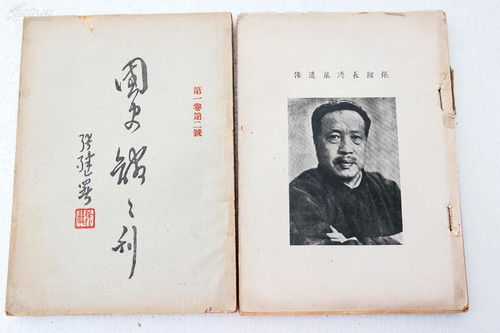 第一卷第二號
國史館々刊
張繼署
張館長溥泉遺像